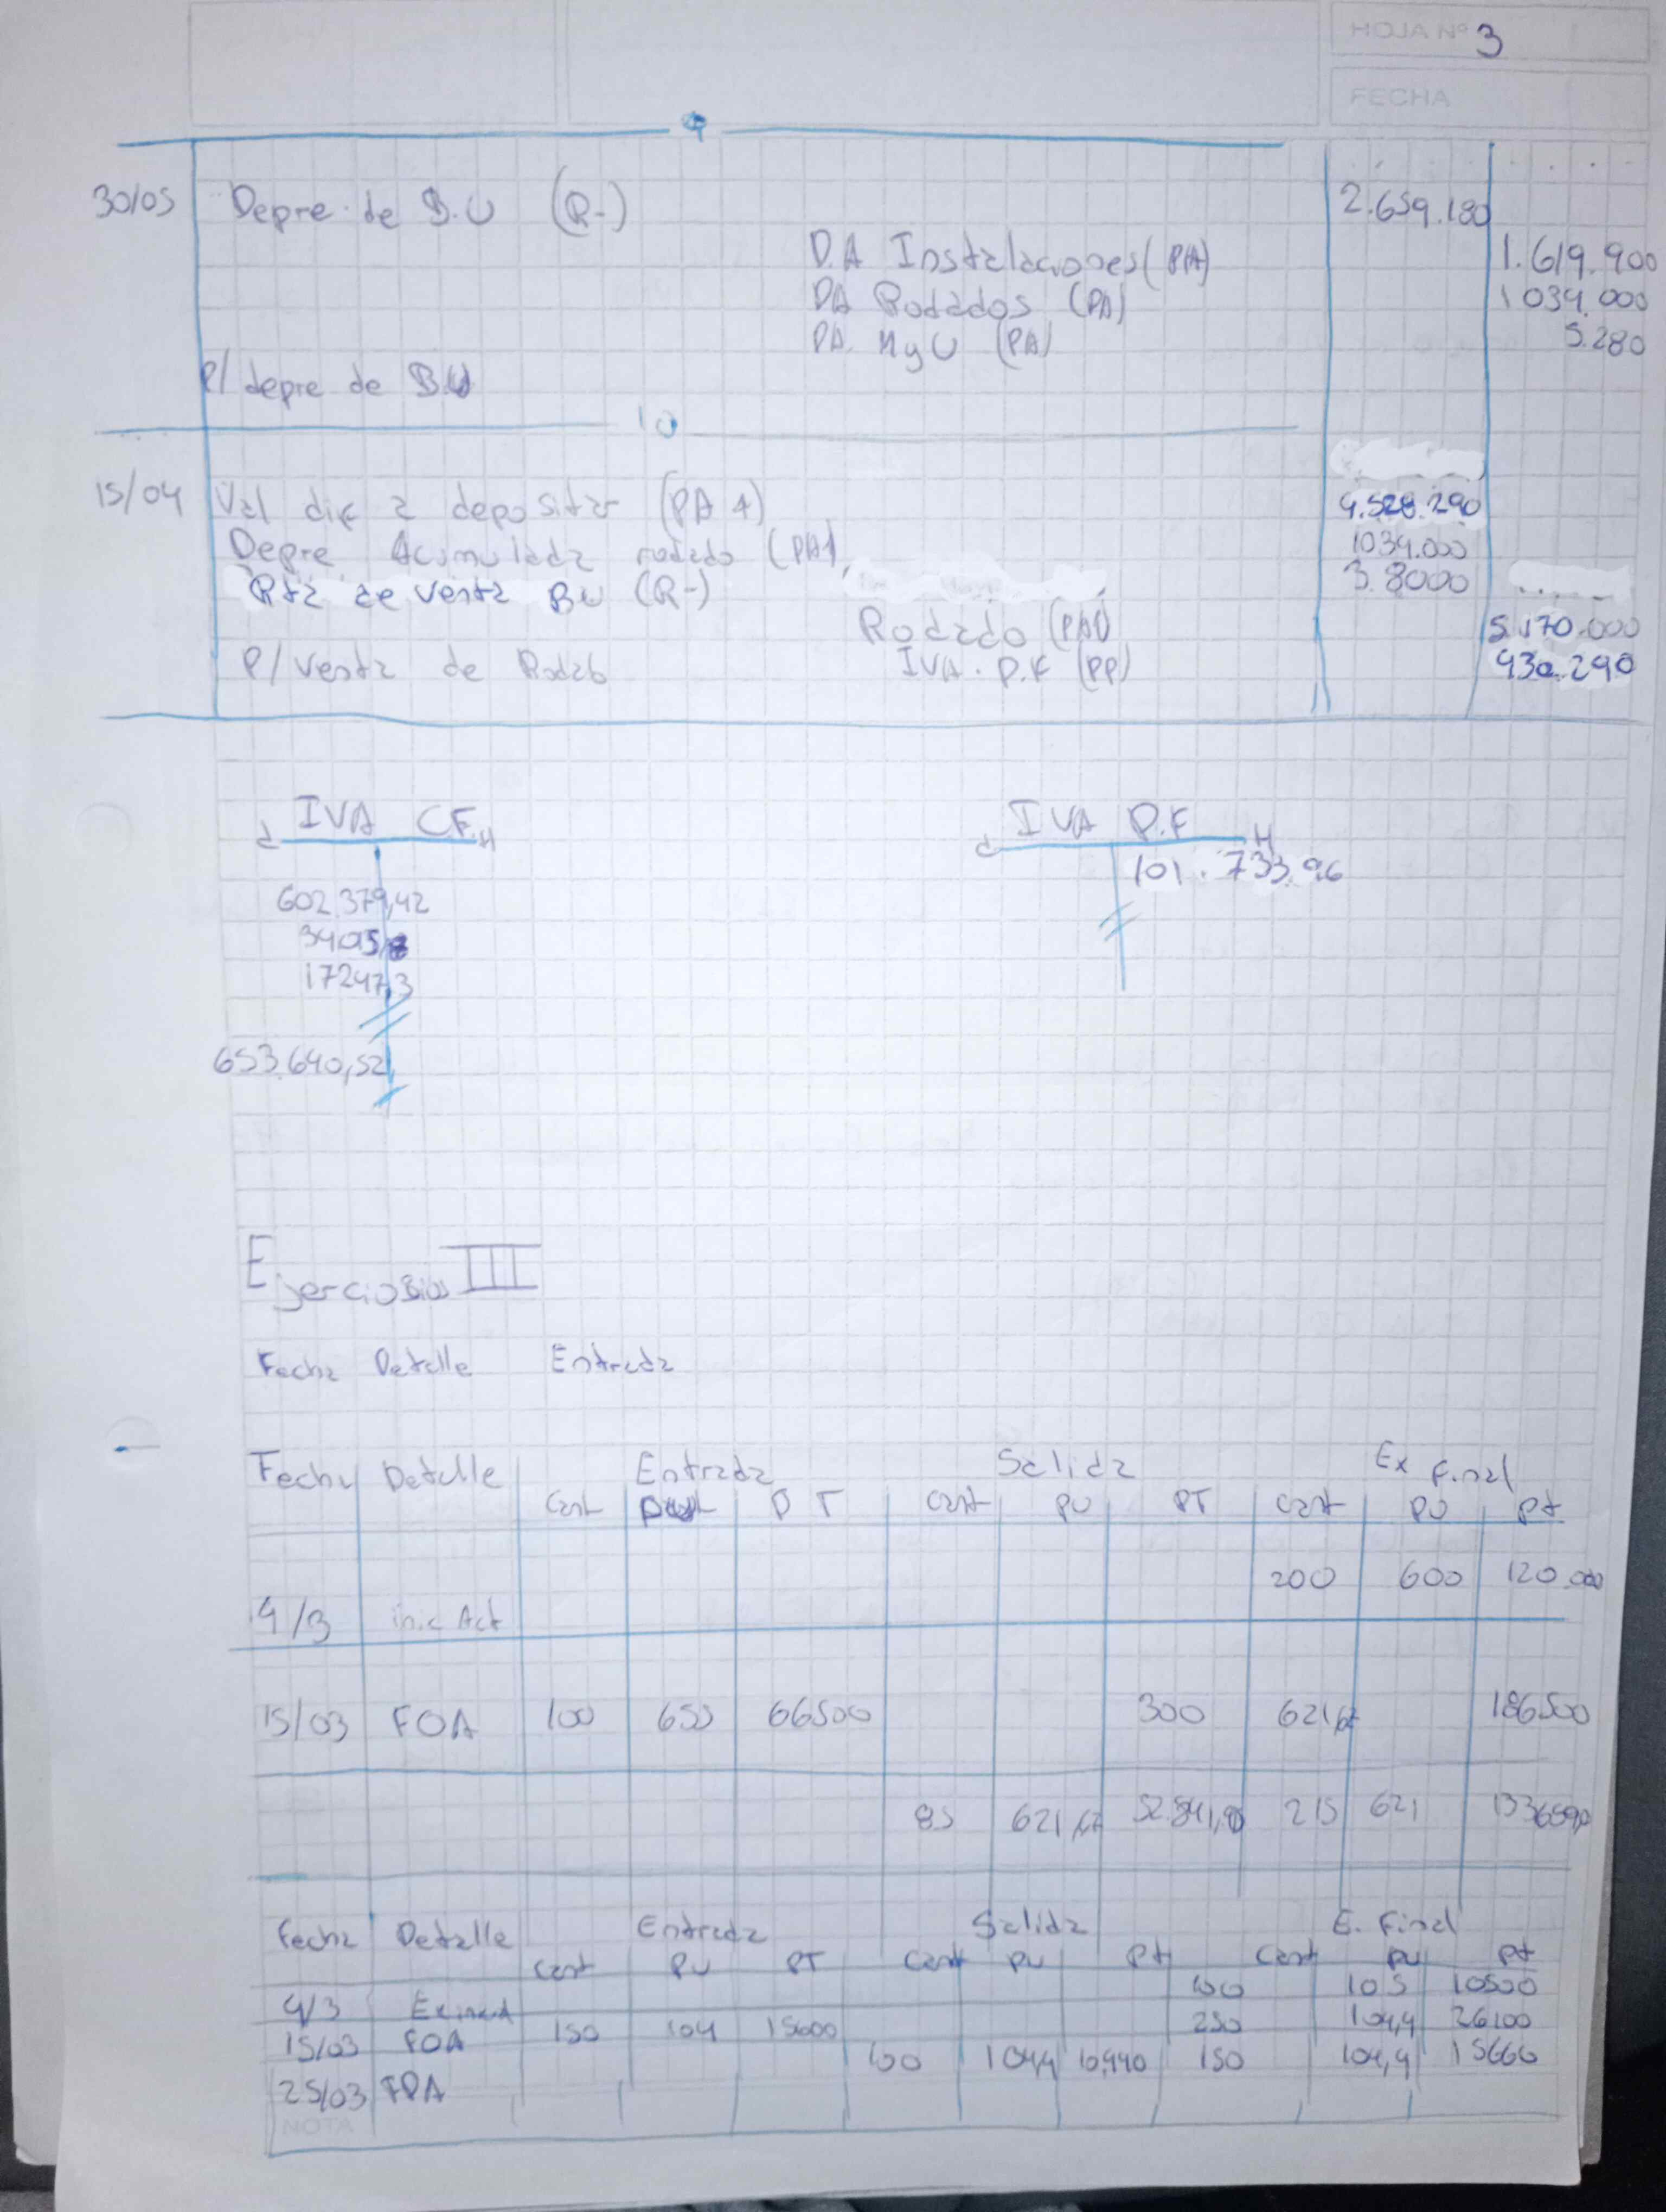 HOJA Nº 3
FECHA
9
30/05 Depre. de B.U (R-) 2.659.180
D.A Instalaciones (PA) 1.619.900
DA Rodados (PA) 1 034.000
DA. MyU (PA) 5.280
P/ depre de B.U
10
15/04 Val dif a depositar (PA+) 4.528.290
Depre Acumulada rodado (PA) 1034.000
Rta de venta BU (R-) 3.8000
Rodado (PA) 5.170.000
P/ venta de Rodab IVA. D.F (PP) 430.290
IVA CF. IVA D.F
d H d H
101.733.96
602.379,42
17247,3
653.640,52
Ejercicios III
Fecha Detalle Entrada
Fecha Detalle Entrada Salida Ex final
Cant P T cant PU PT cant PU pt
200 600 120.000
4/3 inic Act
15/03 FOA 100 650 66500 300 621,67 186500
85 621,67 215 621
Fecha Detalle Entrada Salida E. Final
Cant PU PT Cant PU Pt Cant PU pt
4/3 100 105 10500
15/03 FOA 150 104 15600 250 104,4 26100
100 104,4 10,440 150 104,4 15660
25/03
NOTA